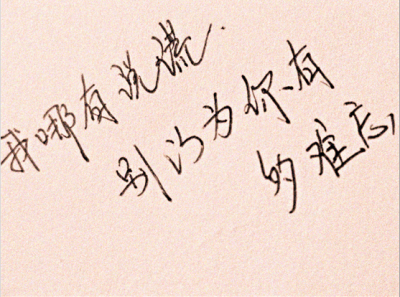 我哪有说谎.
别以为你有
的难忘,